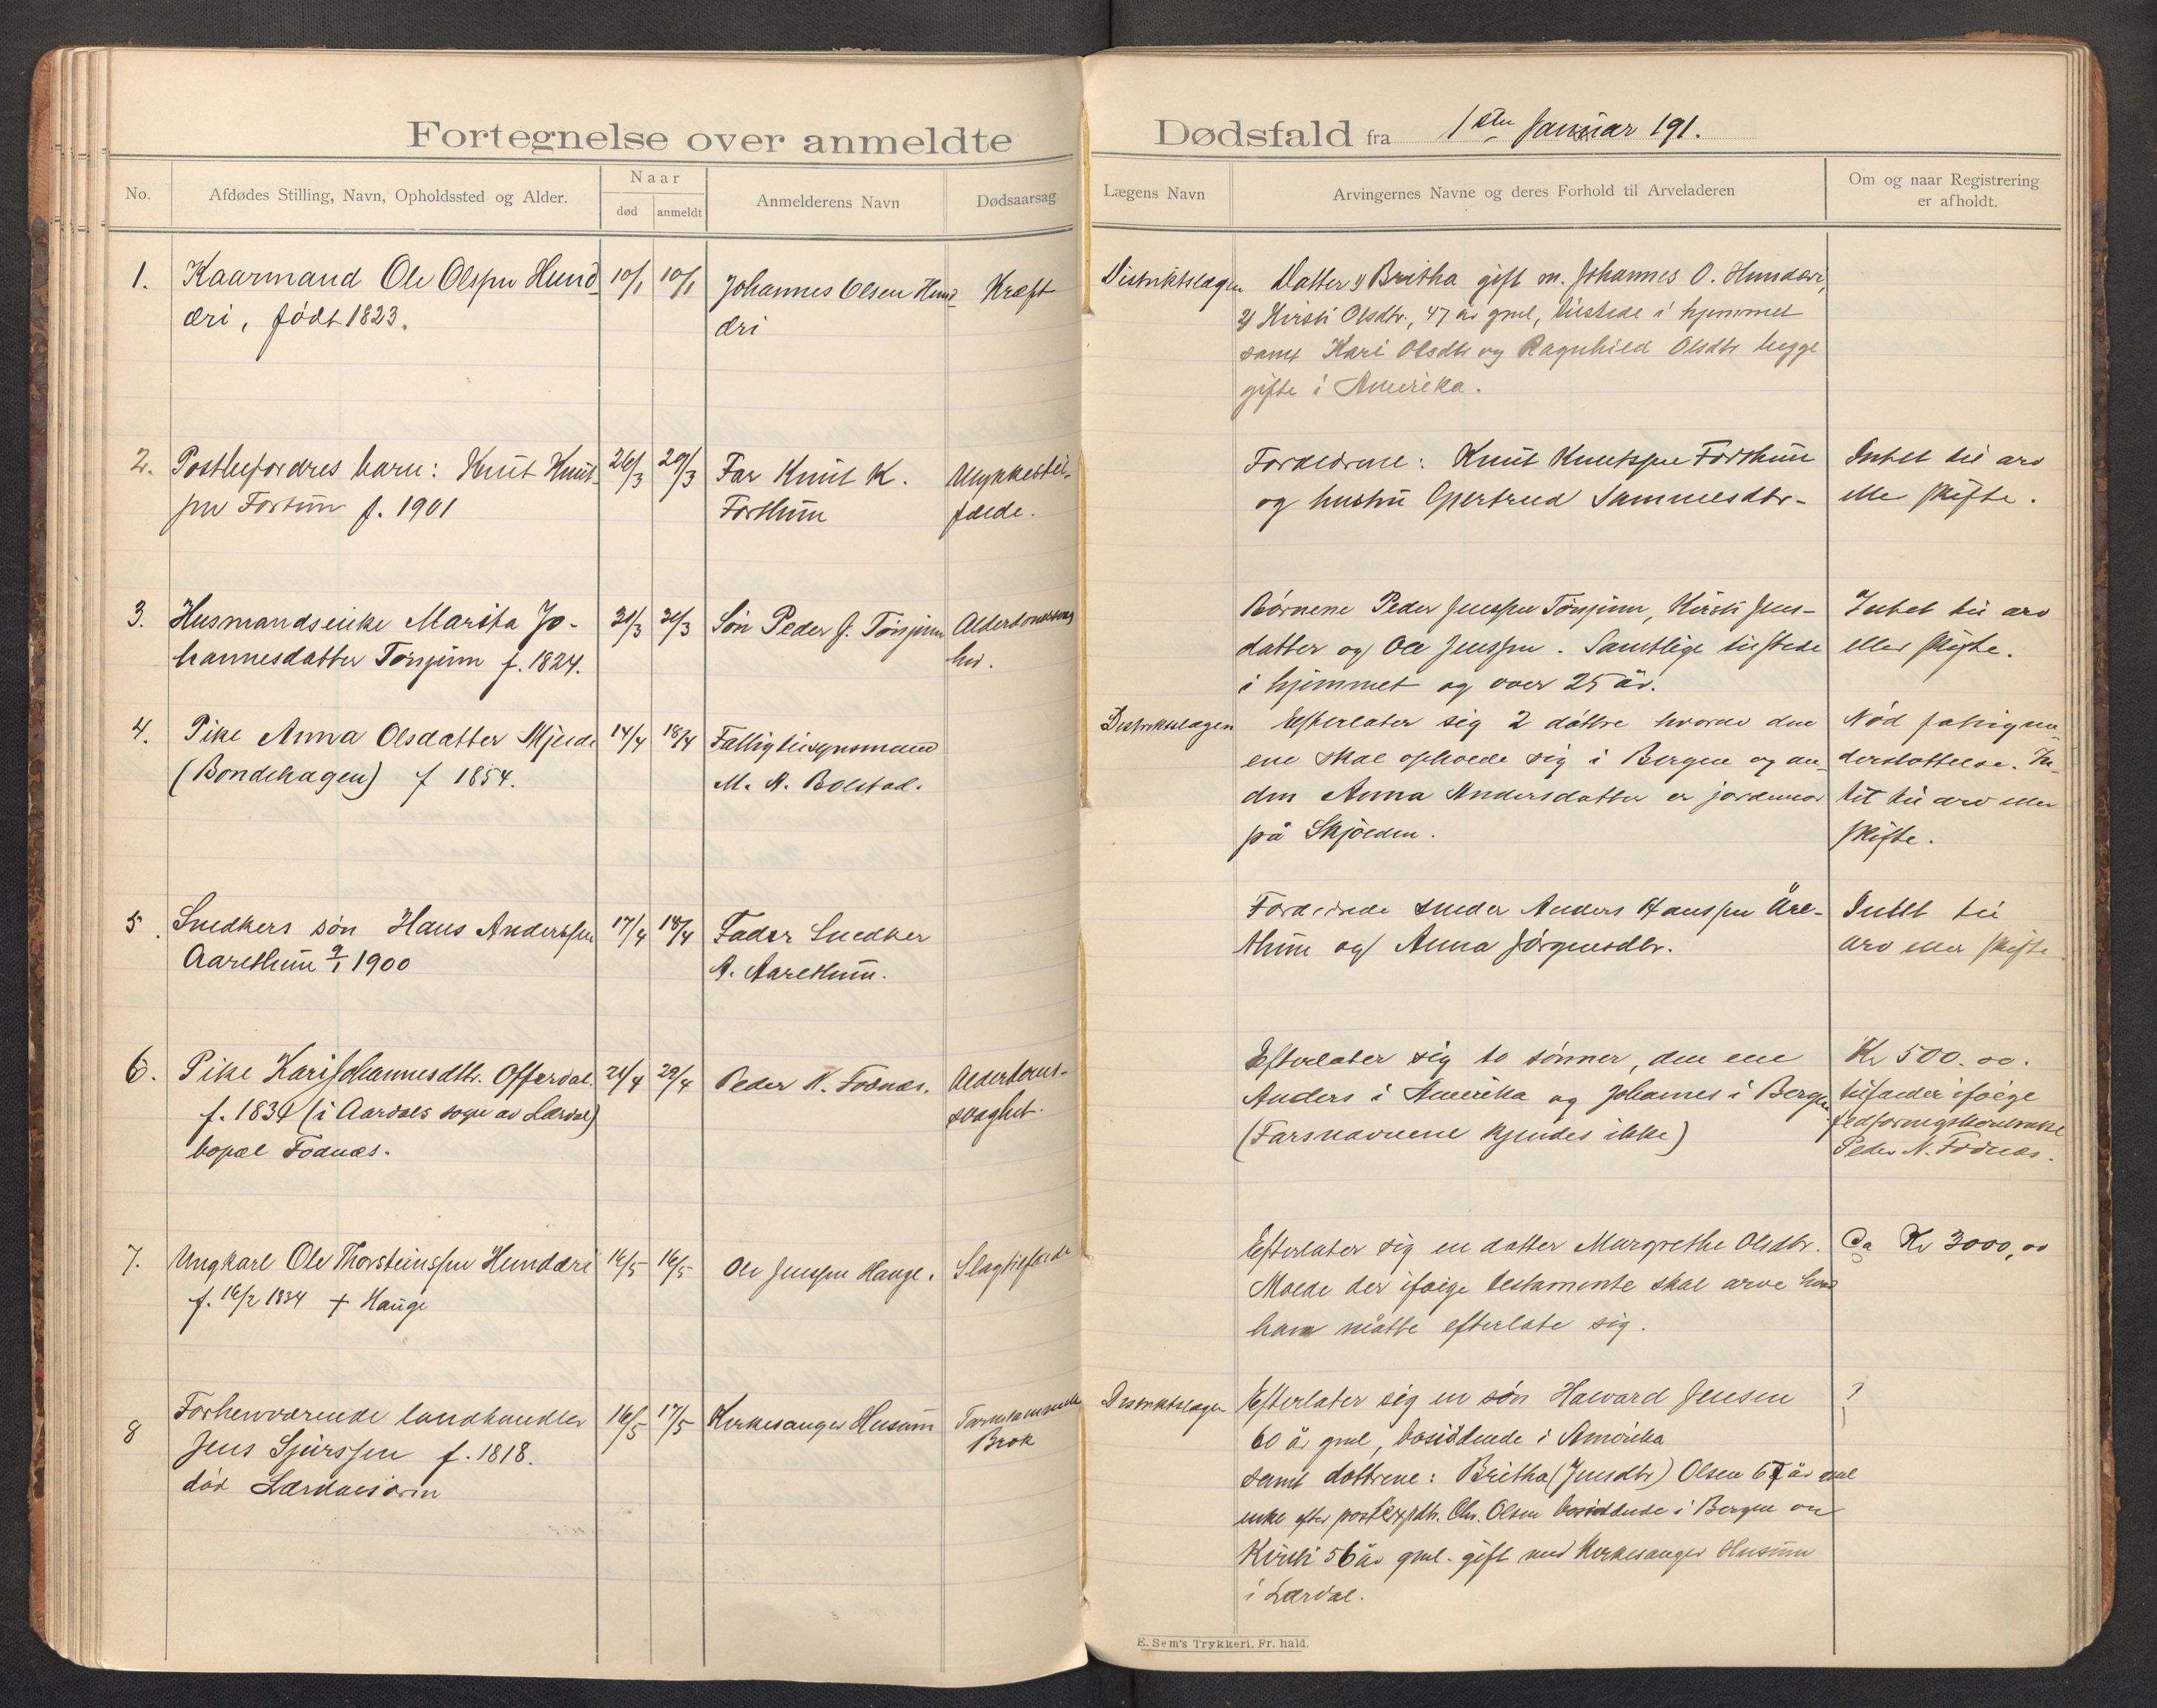 Fortegnelse over anmeldte
Dødsfald fra 1ste Januar 191.
No.
Afdødes Stilling, Navn, Opholdssted og Alder.
Naar
død
anmeldt
Anmelderens Navn
Dødsaarsag
Lægens Navn
Arvingernes Navne og deres Forhold til Arveladeren
Om og naar Registrering
er afholdt.
1.
Kaarmand Ole Olsen Hund-
eri, født 1823.
10/1
10/1
Johannes Olsen Hund-
eri
Kræft
Distriktslægen
Datter 1) Britha gift m. Johannes O. Hunderi,
2) Kirsti Olsdtr., 47 år gml, tilstede i hjemmet
samt Kari Olsdtr og Ragnhild Olsdtr begge
gifte i Amerika.
2.
Postbefordres barn: Knut Knut-
sen Fortun f. 1901
26/3
29/3
Far Knut K.
Forthun
Ulykkestil-
fælde.
Forældrene: Knut Knutsen Forthun
og hustru Gjertrud Sammelsdtr-
Intet til arv
eller skifte.
3.
Husmandsenke Marita Jo-
hannesdatter Tørsjum f. 1824.
30/3
30/3
Søn Peder J. Tørsjum
Alderdomssvag
hed.
Børnene Peder Jenssen Tørsjum, Kirsti Jens-
datter og Ole Jenssen. Samtlige tilstede
i hjemmet og over 25 år.
Intet til arv
eller skifte.
4.
Pike Anna Olsdatter Mjelde
(Bondehagen) f 1854.
14/4
18/4
Fattigtilsynsmand
M. A. Bolstad.
Distriktslægen
Efterlater sig 2 døttre hvorav den
ene skal opholde sig i Bergen og an-
den Anna Andersdatter er jordmor
på Skjolden.
Nød fattigun-
derstøttelse. In-
tet til arv eller
skifte.
5.
Snedkers søn Hans Anderssen
Aarethun 9/1 1900
17/4
18/4
Fader Snedker
A. Aarethun.
Forældrene snedker Anders Hanssen Åre-
thun og Anna Jørgensdtr.
Intet til
arv eller skifte
6.
Pike Kari Johannesdtr. Offerdal.
f. 1834 (i Aardals sogn av Lærdal)
bopæl Fodnæs.
21/4
29/4
Peder N. Fodnæs.
Alderdoms-
svaghet.
Efterlater sig to sønner, den ene
Anders i Amerika og Johannes i Bergen
(Farsnavnene kjendes ikke)
Kr 500.00.
tilfalder ifølge
fedføringskontrakt
Peder N. Fodnæs.
7.
Ungkarl Ole Thorsteinssen Hunderi
f. 16/2 1834 + Hauge
16/5
16/5
Ole Jenssen Hauge.
Slagtilfælde
Efterlater sig en datter Margrethe Olsdtr.
Molde der ifølge testamente skal arve hvad
han måtte efterlate sig.
Ca Kr 3000,00
8
Forhenværende landhandler
Jens Sjurssen f. 1818.
død Lærdalsøren
16/5
17/5
Kirkesanger Husum
Brok
Distriktslægen
Efterlater sig en søn Havard Jensen
60 år gml, bosiddende i Amerika
samt døttrene: Britha (Jensdtr) Olsen 67 år gml
enke efter postexpdtr. Chr. Olsen bosiddende i Bergen og
Kirsti 56 år gml. gift med Kirkesanger Husum
i Lærdal.
?
E. Sem's Trykkeri, Fr. hald.